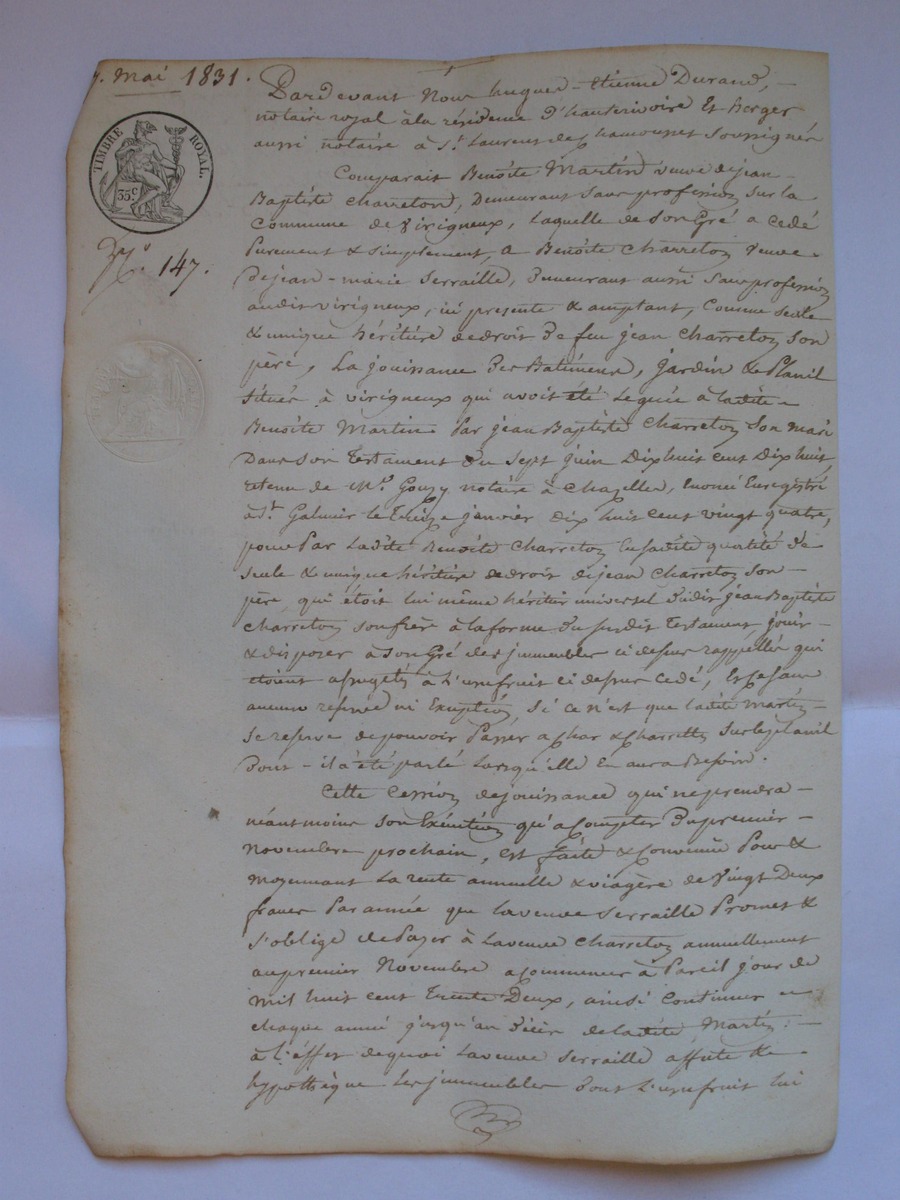 7. mai 1831.
TIMBRE ROYAL.
35 c
N.o 147.
Pardevant Nous hugues-Etienne Durand,
notaire royal à la résidence d'hauterivoire Et berger
aussi notaire à St. Laurent de Chamousset soussignés
Comparait Benoîte Martin veuve de jean
Baptiste Charreton, Demeurant sans profession sur la
Commune de Virigneux, Laquelle de son Gré a cedé
Purement & simplement, a Benoîte Charreton veuve
de jean-marie Serraille, demeurant aussi sans profession
audit virigneux, ici presente & acceptant, Comme seule
& unique héritière de droit De feu jean Charreton son
père, La jouissance Des Batiments, Jardin & Planil
situés à virigneux qui avoit été Leguée à ladite
Benoîte Martin Par jean Baptiste Charreton son mari
Dans son Testament du sept juin Dix huit cent Dix huit,
retenu de Me. Gouzy notaire à Chazelles, Enoncé Enregistré
à St. Galmier le Treize janvier dix huit cent vingt quatre,
pour Par Ladite Benoîte Charreton En sadite qualité de
seule & unique héritière de droit de jean Charreton son
père, qui étoit lui même héritier universel dudit jean Baptiste
Charreton son frère à la forme du susdit Testament, jouir
& disposer à son Gré des jmmeubles ci dessus rappellés qui
étoient assugétis à L'usufruit ci dessus cedé, Et ce sans
aucune reserve ni Exception, si ce n'est que ladite martin
se reserve de pouvoir Passer a Char & Charrette sur le planil
Dont il a été parlé Lorsqu'elle En aura Besoin.
Cette Cession de jouissance qui ne prendra
néantmoins son Exécution qu'a Compter Du premier
Novembre prochain, est faite & Convenue Pour &
moyennant La rente annuelle & viagère de Vingt Deux
francs Par année que la veuve Serraille Promet &
s'oblige de Payer à La veuve Charreton annuellement
au premier Novembre a Commencer à Pareil jour de
mil huit cent Trente Deux, ainsi Continuer
chaque année jusqu'au Décès de ladite Martin:
à l'effet de quoi La veuve Serraille affecte &
hypothèque Les jmmeubles Dont L'usufruit lui